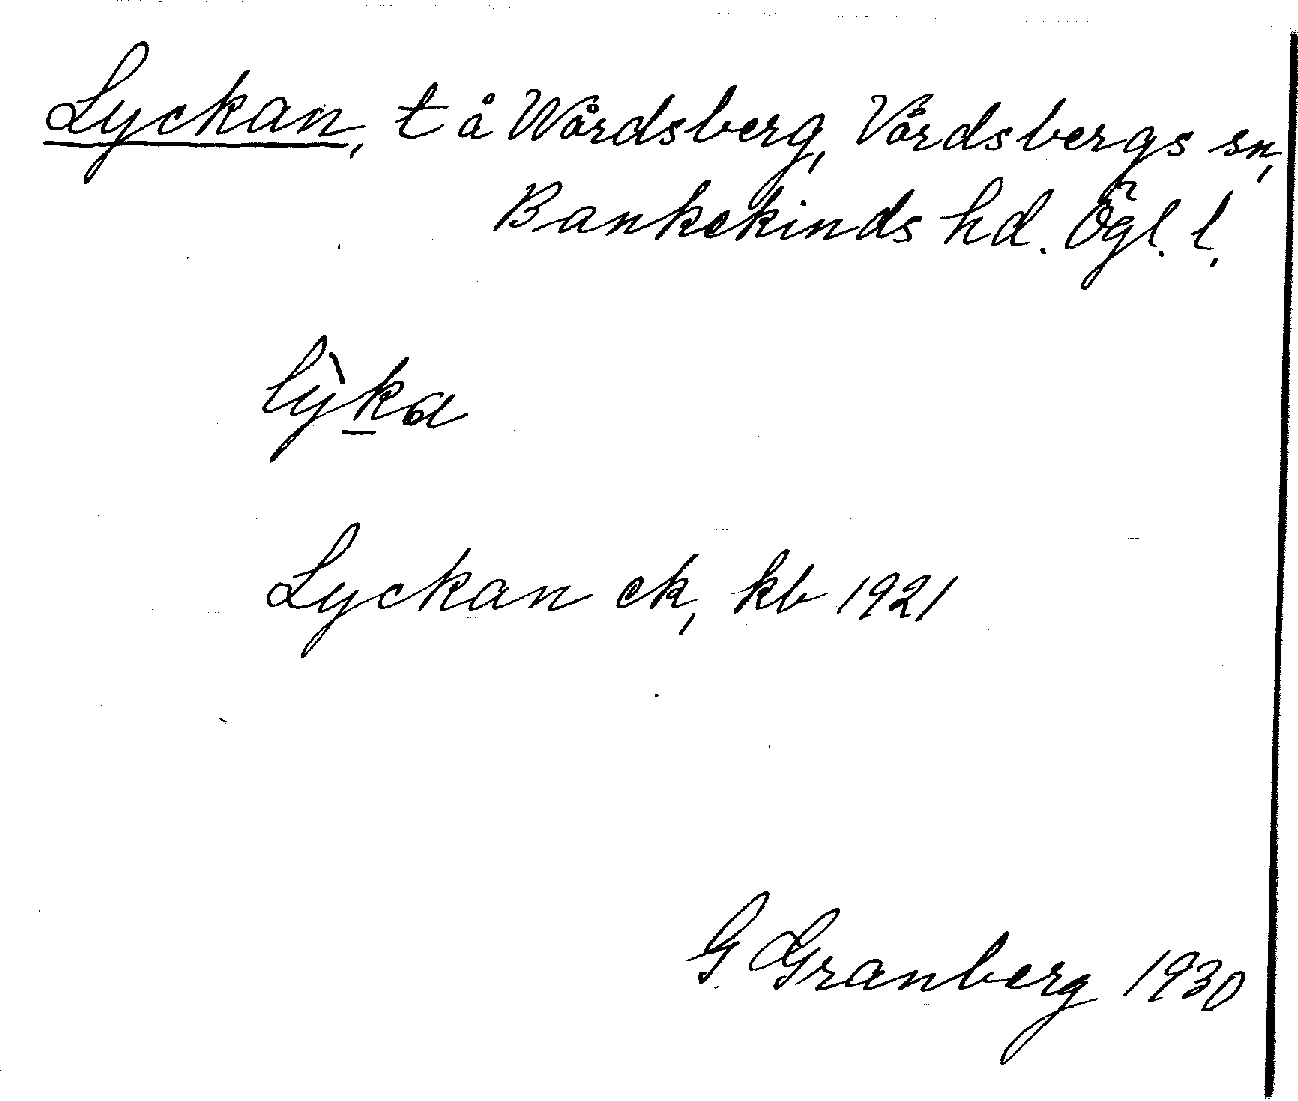 Lyckan, t å Wårdsberg, Vårdsbergs sn,
Bankekinds hd. Ögl. l.
lỳka
Lyckan ek, kb 1921
G. Granberg 1930